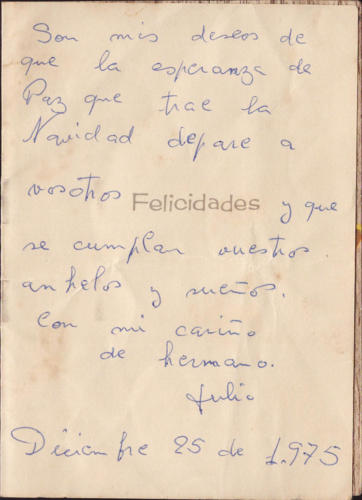 Son mis deseos de
que la esperanza de
Paz que trae la
Navidad depare a
vosotros Felicidades y que
se cumplan vuestros
anhelos y sueños.
Con mi cariño
de hermano.
Julio
Diciembre 25 de 1.975